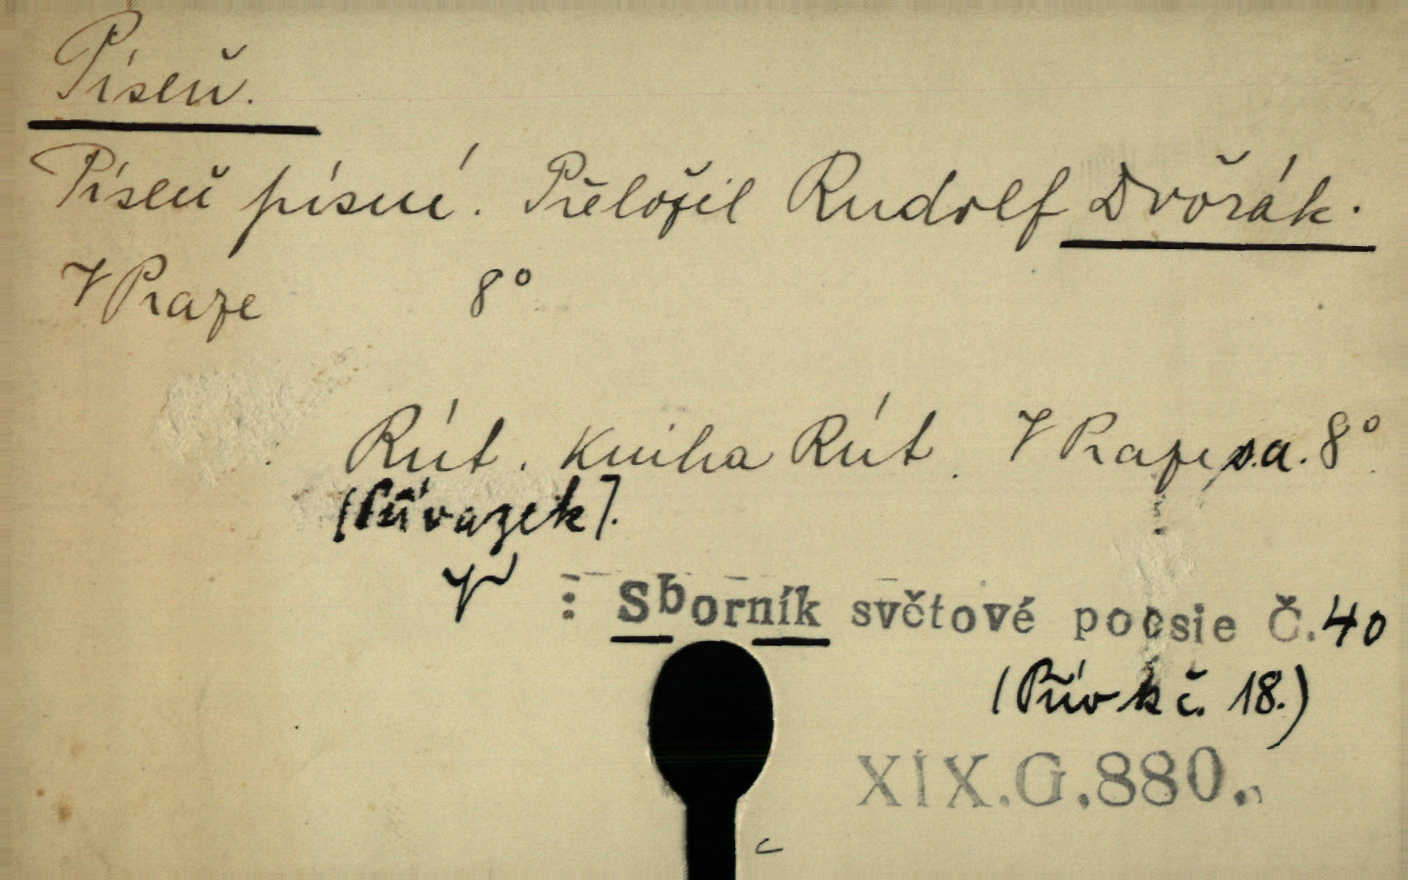 Píseň.
Píseň písní. Přeložil Rudolf Dvořák.
V Praze 8°
Rút. Kniha Rút. V Praze s.a. 8°.
(Přívazek).
V : Sborník světové poesie Č. 40
(Přív k č. 18.)
XIX.G.880.